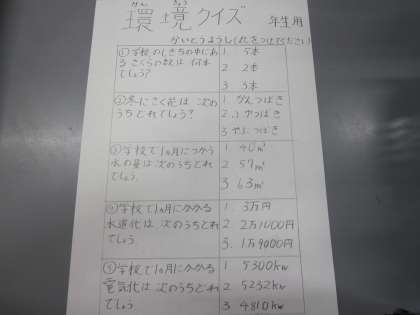 かん きょう
環境クイズ 年生用
かいとうようしにれをつけてください
①学校のしきちの中にあ
るさくらの数は何本
でしょう?
1 5本
2 2本
3 3本
②冬にさく花は次の
うちどれでしょう?
1 かんつばき
2.つばき
3 やぶつばき
③学校で1ヵ月につかう
水の量は次のうちどれ
でしょう
1 40m³
2 57m³
3 63m³
④学校で1ヵ月にかかる
水道代は次のうちどれ
でしょう
1. 3万円
2 2万1000円
3. 1万9000円
⑤学校で1ヵ月にかかる
電気代は次のうちどれ
でしょう
1 5300kw
2 5232kw
3 4810kw